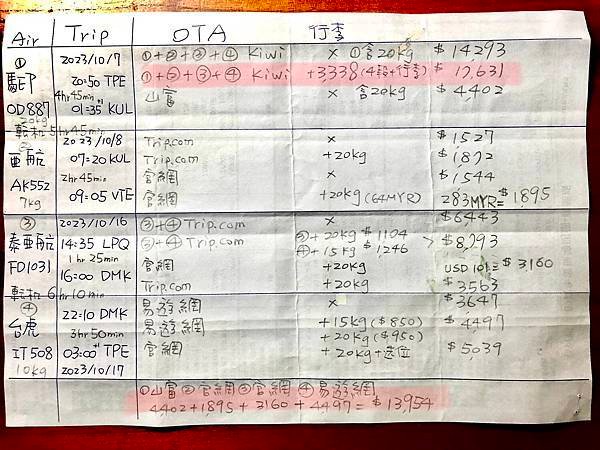 Air Trip OTA 行李
① 2023/10/7 ①+②+③+④ Kiwi × ①含20kg $14,293
馬印 20:50 TPE ①+②+③+④ Kiwi +3338(4段+行李) $17,631
4hr45min 山富 × 含20kg $4,402
OD887 01:35+1 KUL
20kg
轉机 5hr45min
② 2023/10/8 Trip.com × $1527
亞航 07:20 KUL Trip.com +20kg $1,892
AK552 2hr45min 官網 × $1,544
7kg 09:05 VTE 官網 +20kg(64MYR) 283MYR=$1,895
③ 2023/10/16 ③+④ Trip.com × $6443
泰亞航 14:35 LPQ ③+④ Trip.com ③+20kg $1104 ④+15kg $1,246 > $8,793
FD1031 1hr25min 官網 +20kg USD101=$3160
16:00 DMK Trip.com +20kg $3,563
轉机 6hr10min
④ 22:10 DMK 易遊網 × $3647
台虎 3hr50min 易遊網 +15kg($850) $4497
+20kg($950)
IT508 03:00+1 TPE 官網 +20kg+选位 $5,039
10kg 2023/10/17
①山富②官網③官網④易遊網
4402+1,895+3160+4,497=$13,954